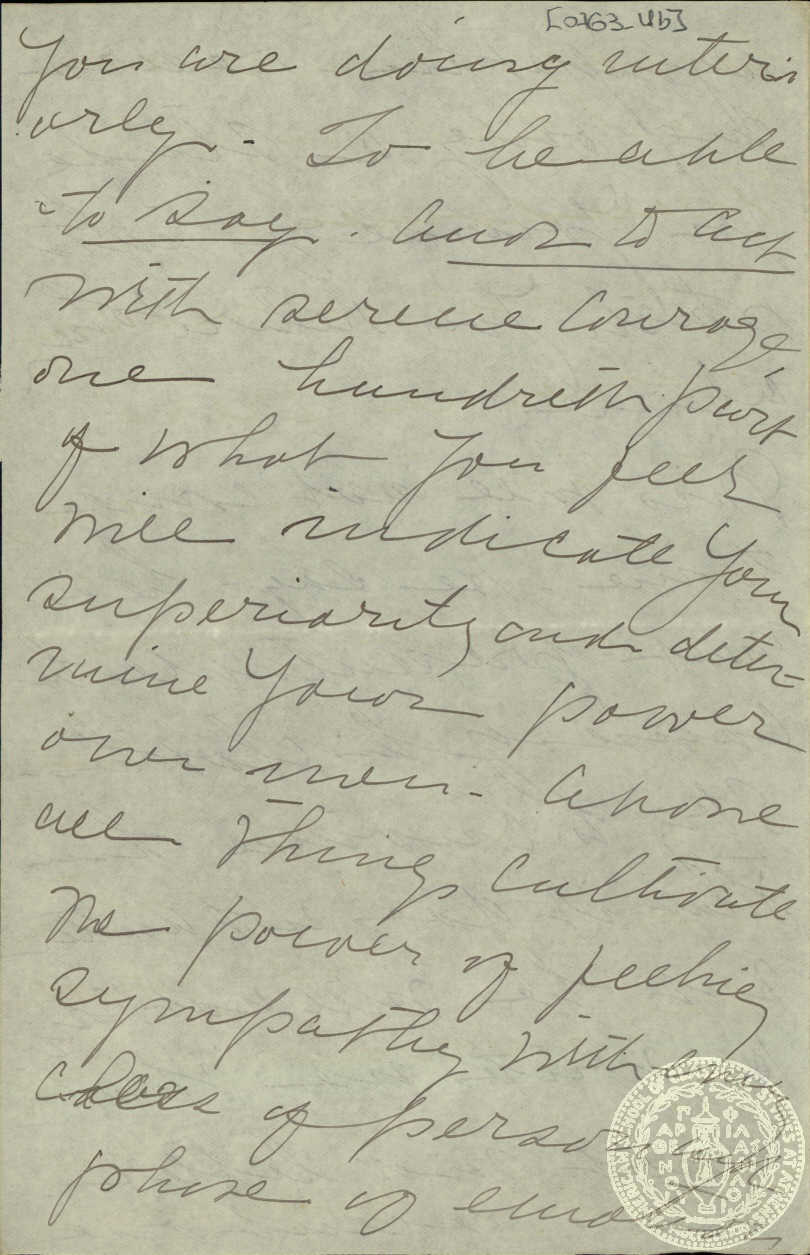 [0763_Ub]
You are doing interi
orly - To be able
to say. and to act
with serene courage,
one hundreth part
of what you feel
will indicate your
superiority and deter-
mine your power
over men - Above
all things cultivate
the power of feeling
sympathy with every
class of person and
phase of
AMERICAN SCHOOL OF CLASSICAL STUDIES AT ATHENS